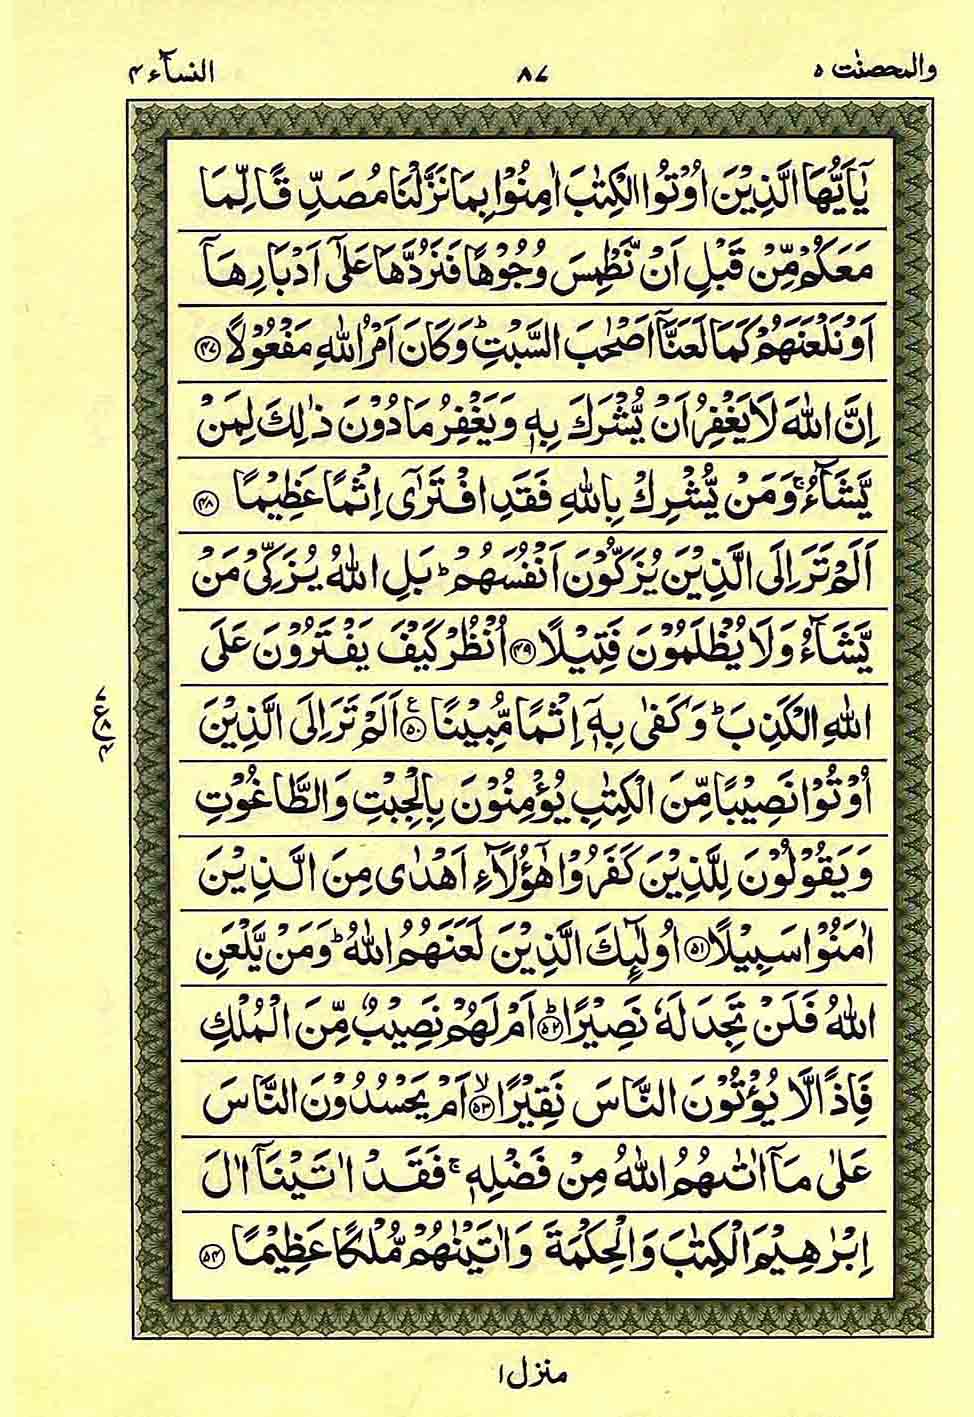 والمحصنٰت ٥
٨٧
النسآء ٤
يٰٓاَيُّهَا الَّذِيْنَ اُوْتُوا الْكِتٰبَ اٰمِنُوْا بِمَا نَزَّلْنَا مُصَدِّ قًا لِّمَا
مَعَكُمْ مِّنْ قَبْلِ اَنْ نَّطْمِسَ وُجُوْهًا فَنَرُدَّهَا عَلٰٓى اَدْبَارِهَآ
اَوْ نَلْعَنَهُمْ كَمَا لَعَنَّآ اَصْحٰبَ السَّبْتِ ؕ وَكَانَ اَمْرُ اللّٰهِ مَفْعُوْلًا ﴿٤٧﴾
اِنَّ اللّٰهَ لَا يَغْفِرُ اَنْ يُّشْرَكَ بِهٖ وَيَغْفِرُ مَا دُوْنَ ذٰلِكَ لِمَنْ
يَّشَآءُ ۚ وَمَنْ يُّشْرِكْ بِاللّٰهِ فَقَدِ افْتَرٰٓى اِثْمًا عَظِيْمًا ﴿٤٨﴾
اَلَمْ تَرَ اِلَى الَّذِيْنَ يُزَكُّوْنَ اَنْفُسَهُمْ ؕ بَلِ اللّٰهُ يُزَكِّىْ مَنْ
يَّشَآءُ وَلَا يُظْلَمُوْنَ فَتِيْلًا ﴿٤٩﴾ اُنْظُرْ كَيْفَ يَفْتَرُوْنَ عَلَى
اللّٰهِ الْكَذِبَ ؕ وَكَفٰى بِهٖٓ اِثْمًا مُّبِيْنًا ﴿٥٠﴾ ع اَلَمْ تَرَ اِلَى الَّذِيْنَ
اُوْتُوْا نَصِيْبًا مِّنَ الْكِتٰبِ يُؤْمِنُوْنَ بِالْجِبْتِ وَالطَّاغُوْتِ
وَيَقُوْلُوْنَ لِلَّذِيْنَ كَفَرُوْا هٰٓؤُلَآءِ اَهْدٰى مِنَ الَّذِيْنَ
اٰمَنُوْا سَبِيْلًا ﴿٥١﴾ اُولٰٓئِكَ الَّذِيْنَ لَعَنَهُمُ اللّٰهُ ؕ وَمَنْ يَّلْعَنِ
اللّٰهُ فَلَنْ تَجِدَ لَهٗ نَصِيْرًا ؕ ﴿٥٢﴾ اَمْ لَهُمْ نَصِيْبٌ مِّنَ الْمُلْكِ
فَاِذًا لَّا يُؤْتُوْنَ النَّاسَ نَقِيْرًا ۙ ﴿٥٣﴾ اَمْ يَحْسُدُوْنَ النَّاسَ
عَلٰى مَآ اٰتٰىهُمُ اللّٰهُ مِنْ فَضْلِهٖ ۚ فَقَدْ اٰتَيْنَآ اٰلَ
اِبْرٰهِيْمَ الْكِتٰبَ وَالْحِكْمَةَ وَاٰتَيْنٰهُمْ مُّلْكًا عَظِيْمًا ﴿٥٤﴾
٧
ع ٨
٤
منزل ١